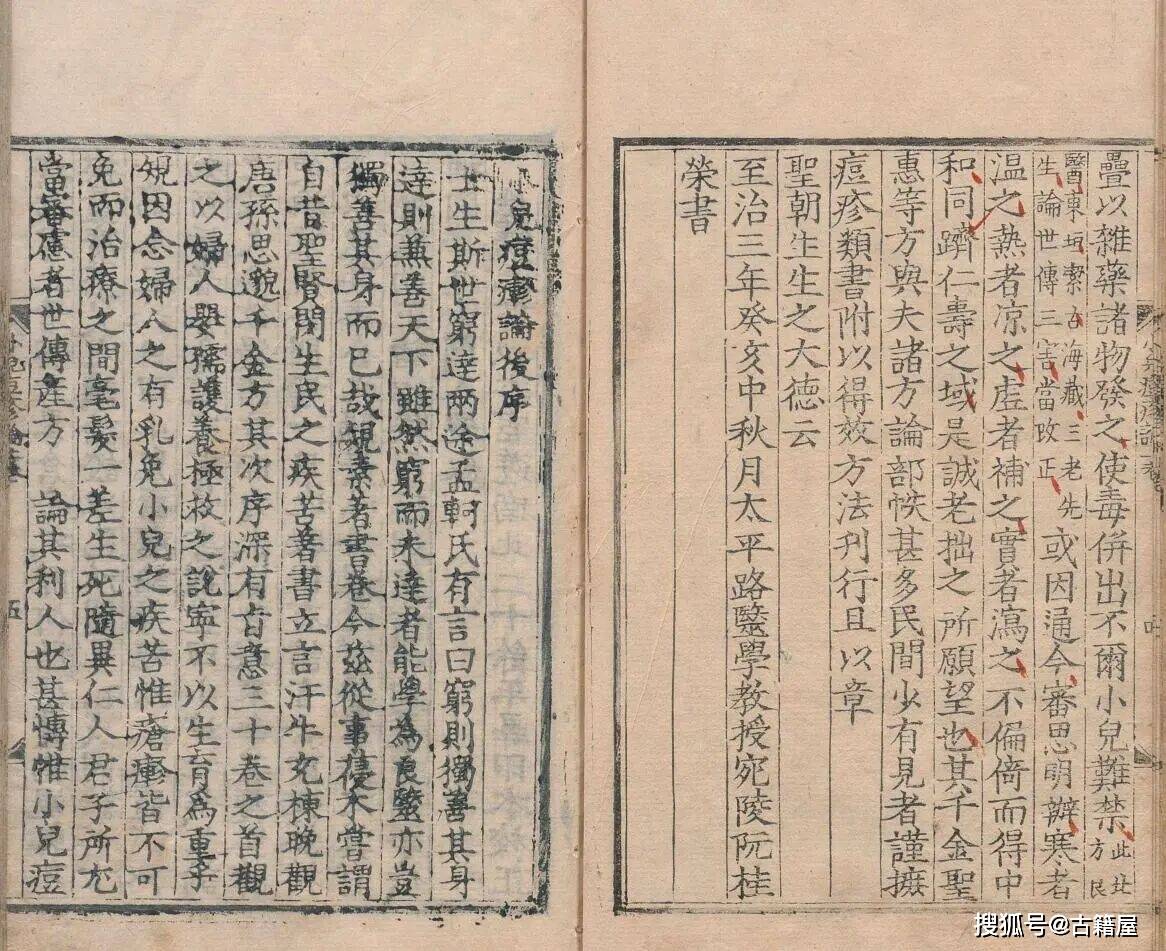 疊以雜藥諸物發之使毒併出不爾小兒難禁此北方良
醫東垣潔古海藏三老先生論世傳三害當改正或因通今審思明辦寒者
温之熱者凉之虛者補之實者瀉之不偏倚而得中
和同躋仁壽之域是誠老拙之所願望也其千金聖
惠等方與夫諸方論部帙甚多民間少有見者謹摭
痘疹類書附以得效方法刊行且以章
聖朝生生之大德云
至治三年癸亥中秋月太平路醫學教授宛陵阮桂
榮書
小兒痘疹論後序
士生斯世窮達兩途孟軻氏有言曰窮則獨善其身
達則兼善天下雖然窮而未達者能學為良醫亦豈
獨善其身而已哉覬素著書卷今茲從事優木嘗謂
自昔聖賢閔生民之疾苦著書立言汗牛充棟晚觀
唐孫思邈千金方其次序深有旨意三十卷之首觀
之以婦人嬰孺護養極救之說寧不以生育為重予
䂓因念婦人之有乳兔小兒之疾苦惟瘡疹皆不可
免而治療之間毫髮一差生死隨異仁人君子所尤
當審慮者世傳產方論其利人也甚慱惟小兒痘
五
搜狐号@古籍屋